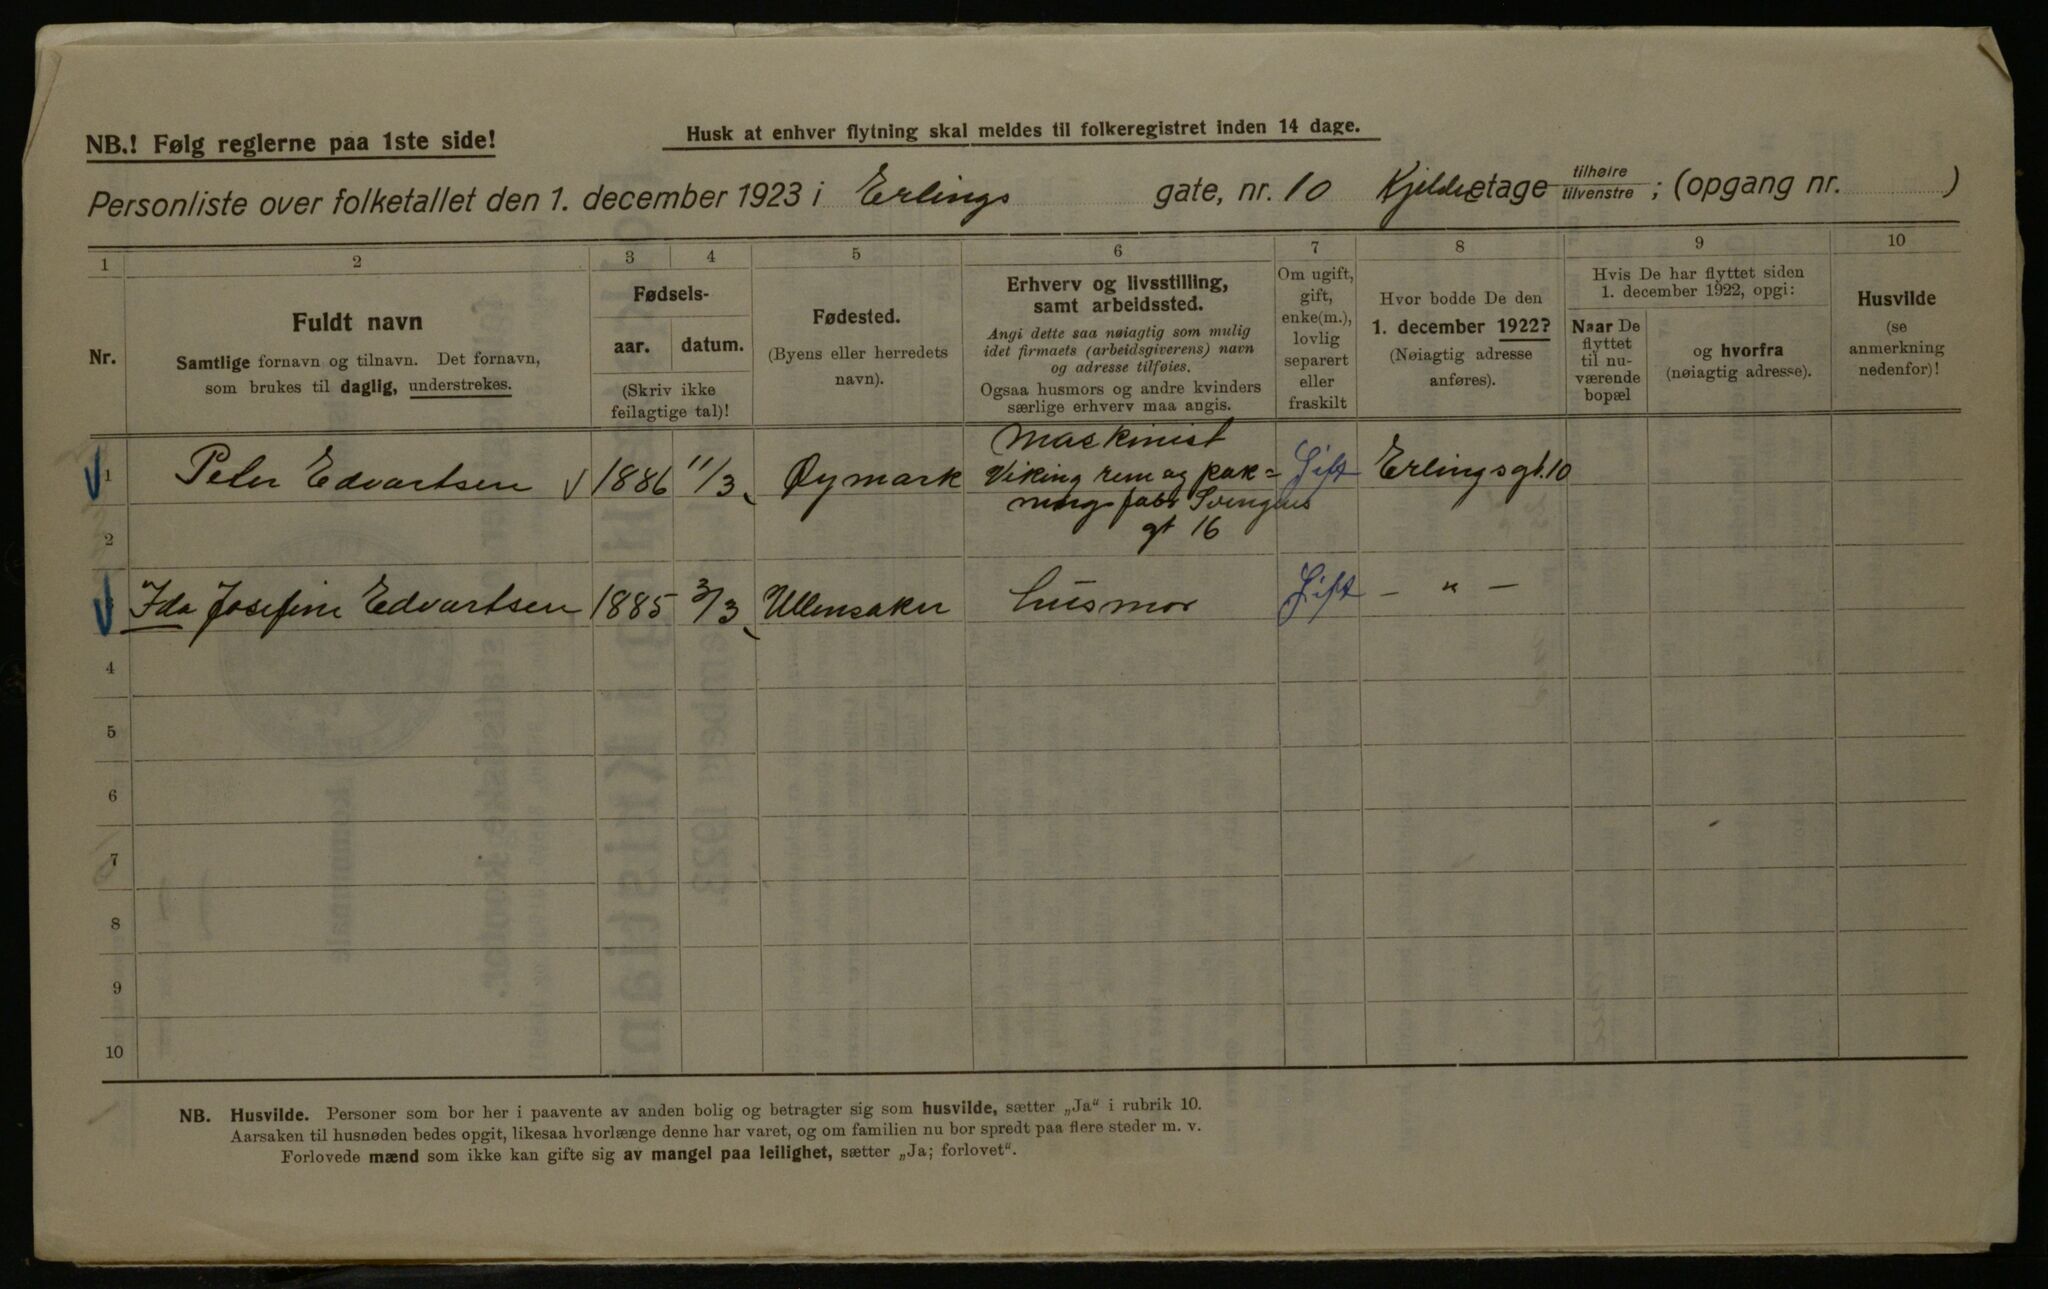 NB.! Følg reglerne paa 1ste side!
Husk at enhver flytning skal meldes til folkeregistret inden 14 dage.
Personliste over folketallet den 1. december 1923 i Erlings gate, nr. 10 Kjelderetage tilhøire tilvenstre ; (opgang nr. )
1 2 3 4 5 6 7 8 9 10
Nr.
Fuldt navn
Samtlige fornavn og tilnavn. Det fornavn,
som brukes til daglig, understrekes.
Fødsels-
aar. datum.
(Skriv ikke
feilagtige tal)!
Fødested.
(Byens eller herredets
navn).
Erhverv og livsstilling,
samt arbeidssted.
Angi dette saa nøiagtig som mulig
idet firmaets (arbeidsgiverens) navn
og adresse tilføies.
Ogsaa husmors og andre kvinders
særlige erhverv maa angis.
Om ugift,
gift,
enke(m.),
lovlig
separert
eller
fraskilt
Hvor bodde De den
1. december 1922?
(Nøiagtig adresse
anføres).
Hvis De har flyttet siden
1. december 1922, opgi:
Naar De
flyttet
til nu-
værende
bopæl
og hvorfra
(nøiagtig adresse).
Husvilde
(se
anmerkning
nedenfor)!
1 Peter Edvartsen 1886 11/3 Øymark Maskinist Gift Erlingsgt. 10
Viking rem og pak-
nings fabr Svenges
gt 16
2
Ida Josefine Edvartsen 1885 3/3 Ullensaker husmor Gift — " —
4
5
6
7
8
9
10
NB. Husvilde. Personer som bor her i paavente av anden bolig og betragter sig som husvilde, sætter „Ja“ i rubrik 10.
Aarsaken til husnøden bedes opgit, likesaa hvorlænge denne har varet, og om familien nu bor spredt paa flere steder m. v.
Forlovede mænd som ikke kan gifte sig av mangel paa leilighet, sætter „Ja; forlovet“.